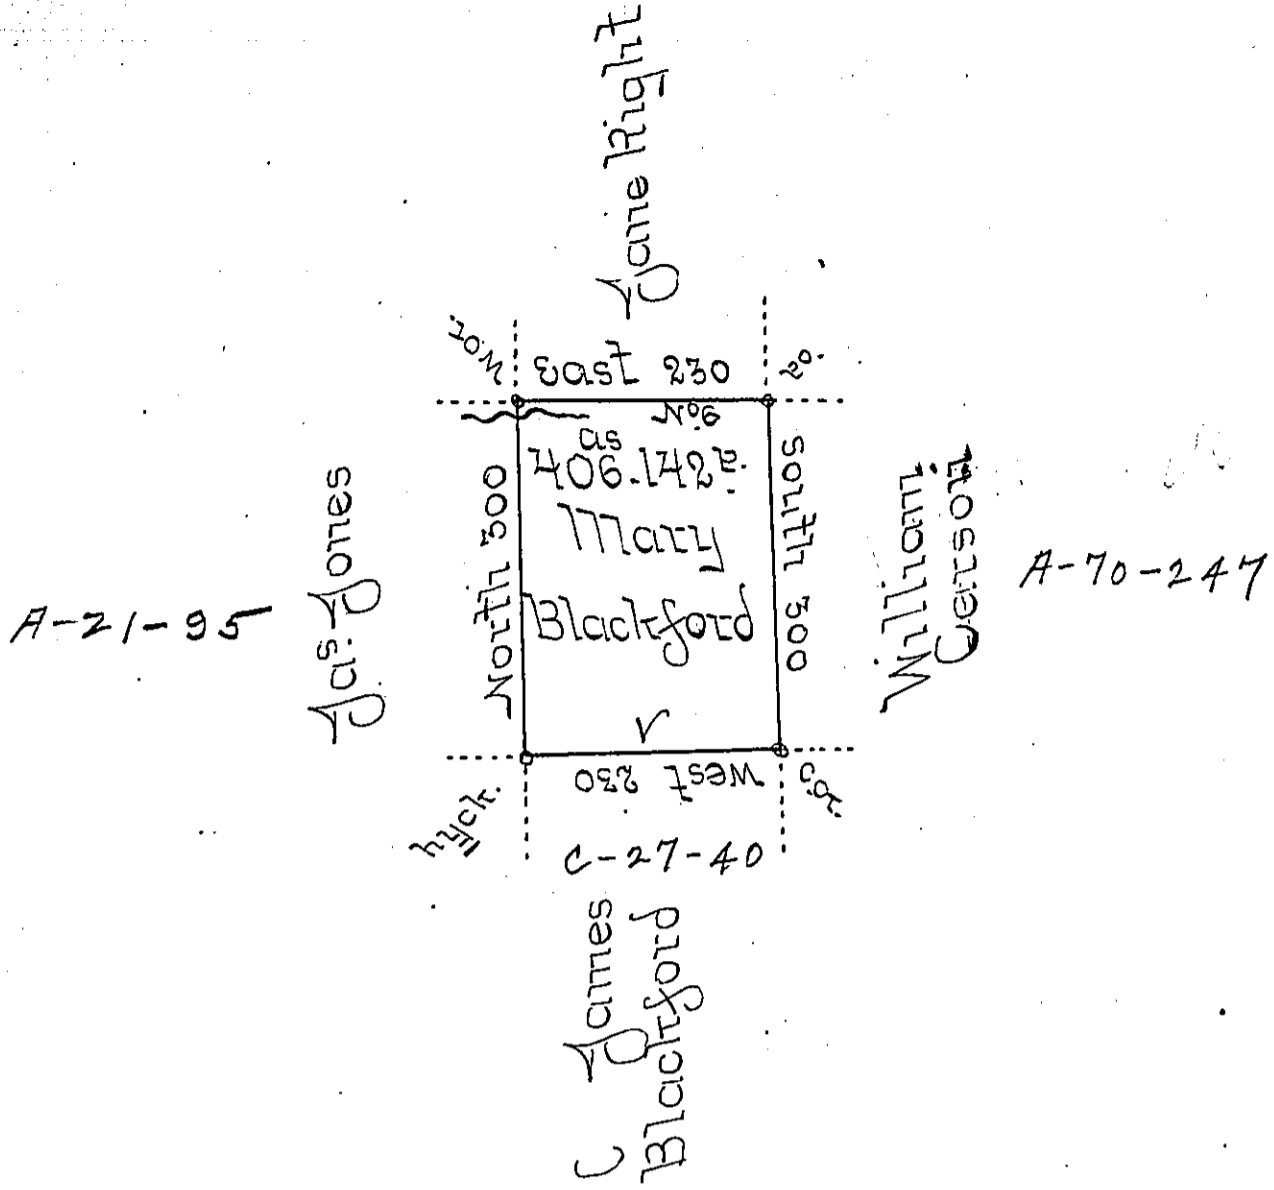 Jane Right
W.o.
East 230
2o.
No. 9
as
406.142 p.
Mary
Blackford
North 300
South 300
Jas. Jones
A-21-95
William
Cerson
A-70-247
West 230
hyck.
C-27-40
C James
Blackford